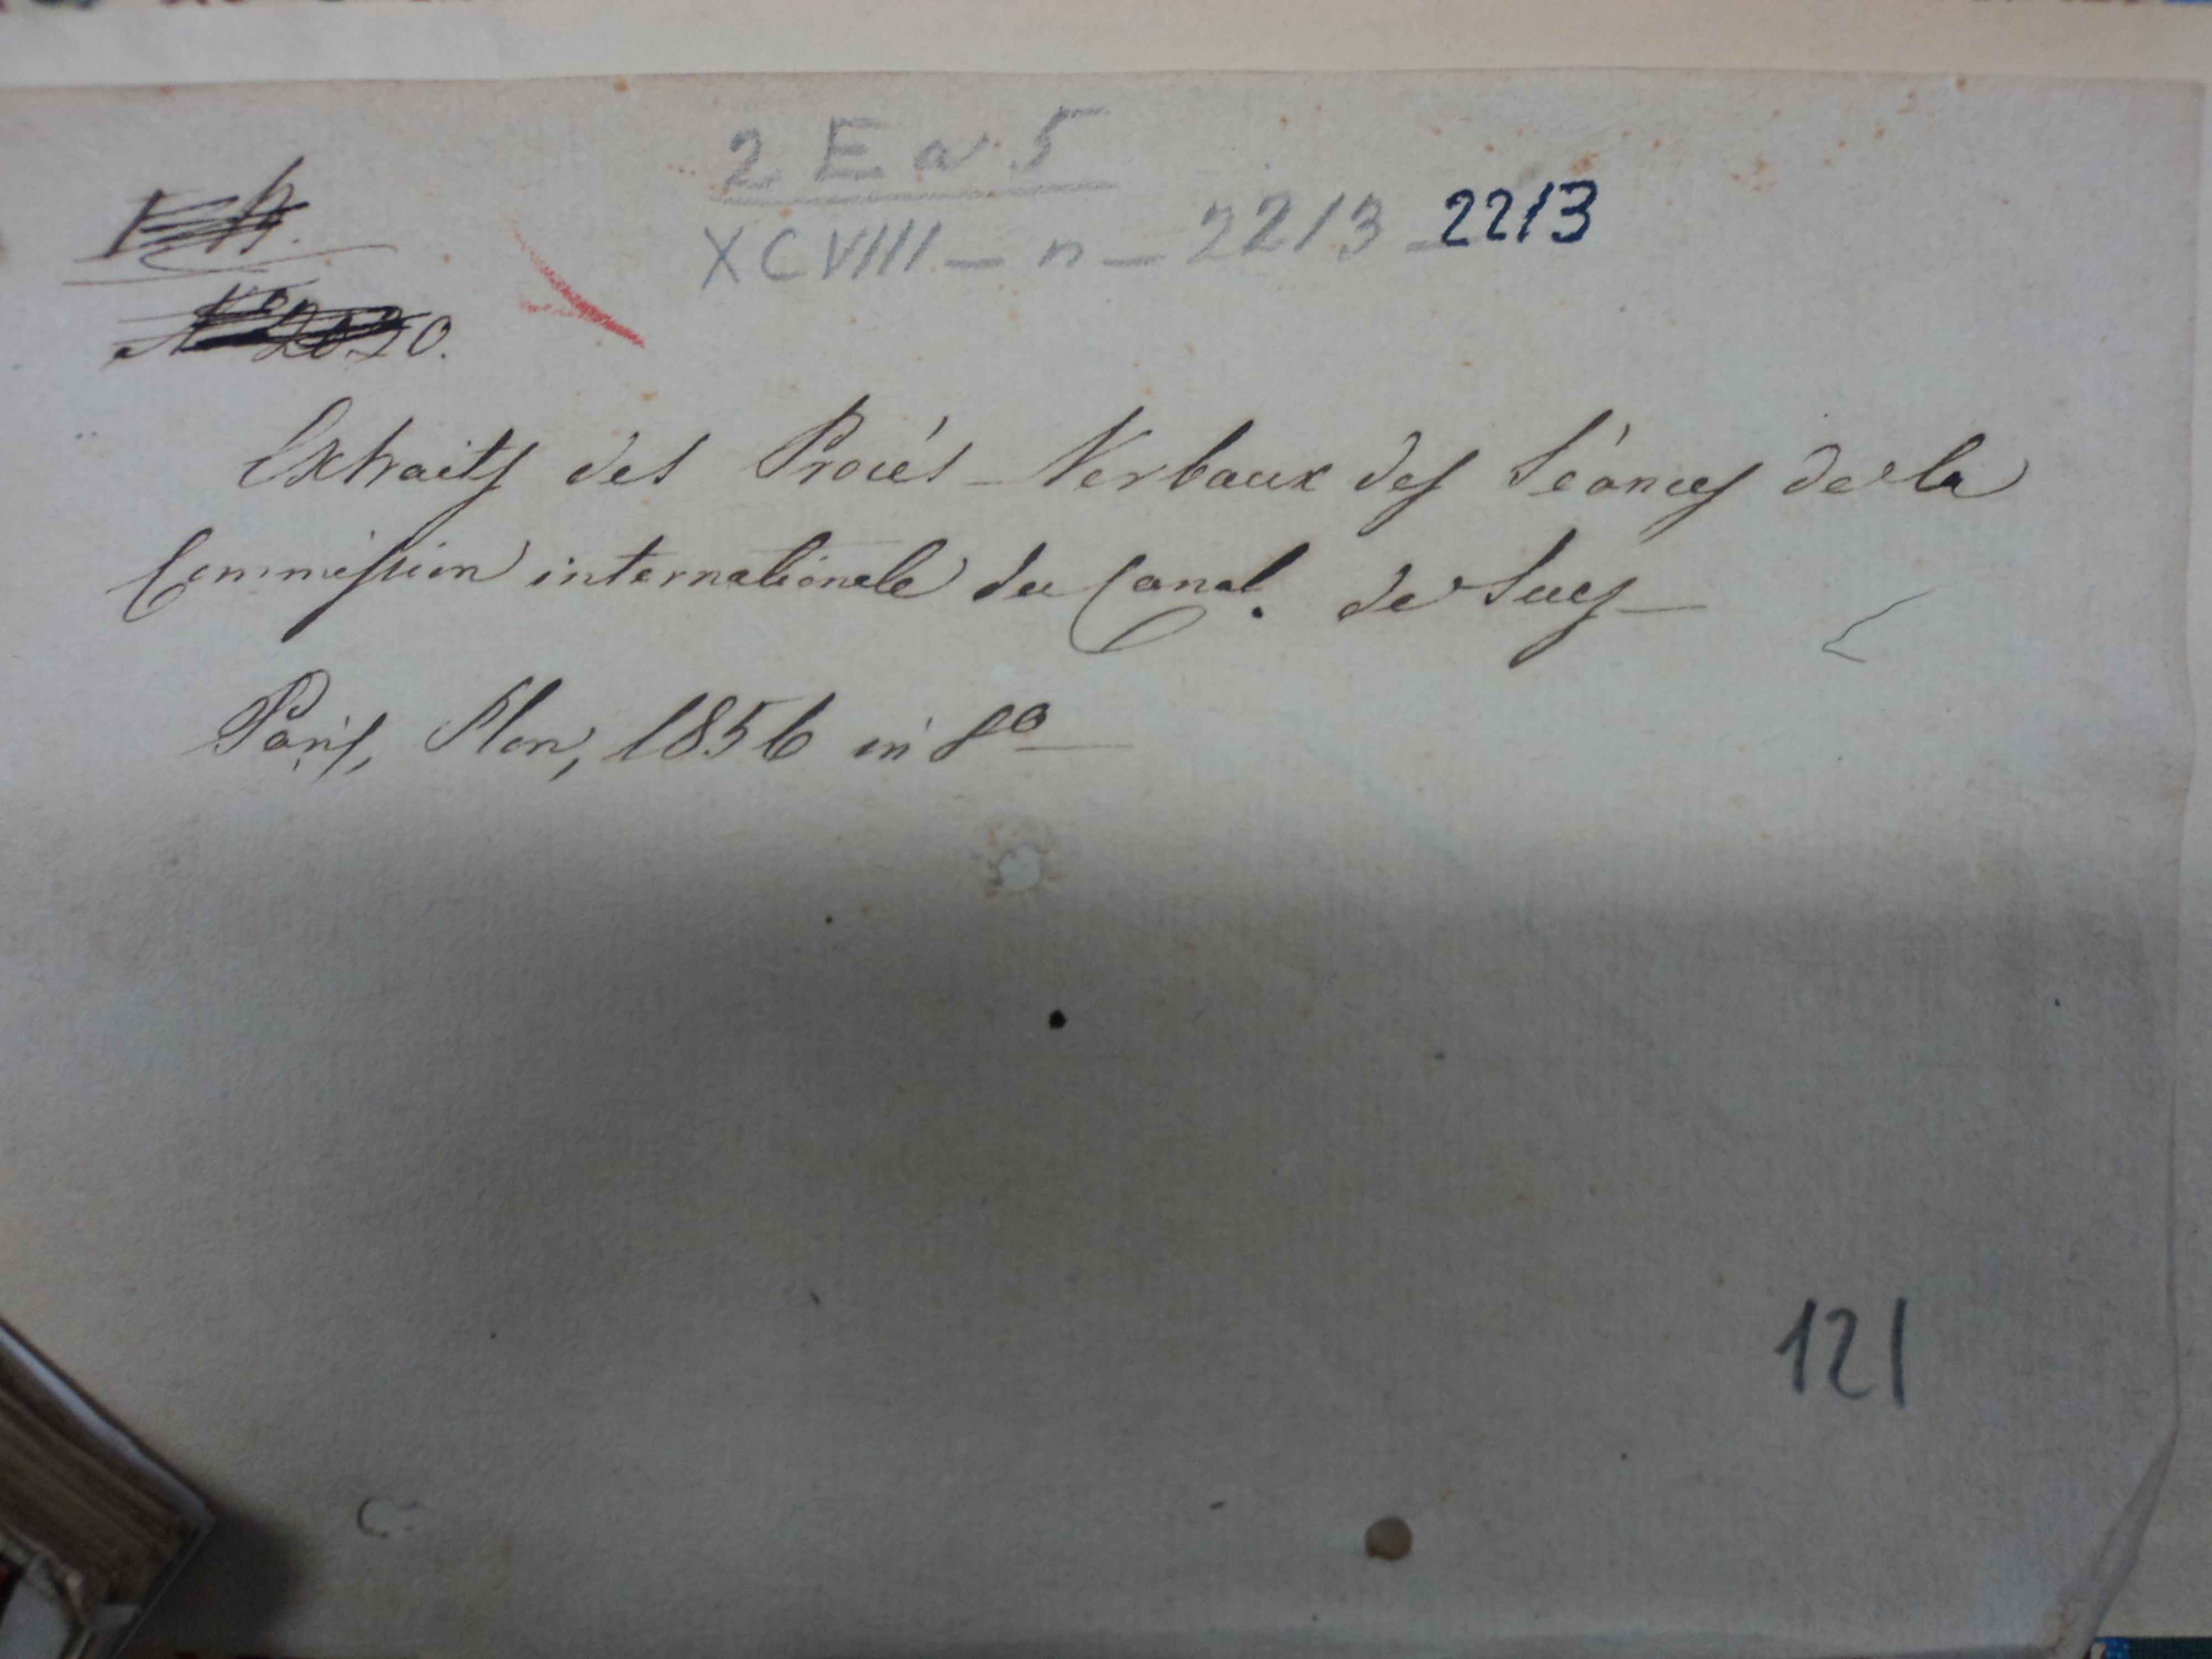 2 E a 5
XCVIII - n - 2213 2213
N° 2020.
Extraits des Procés-Verbaux des Séances de la
Commission internationale du Canal. de Suez
Paris, Plon, 1856 in 8°
121